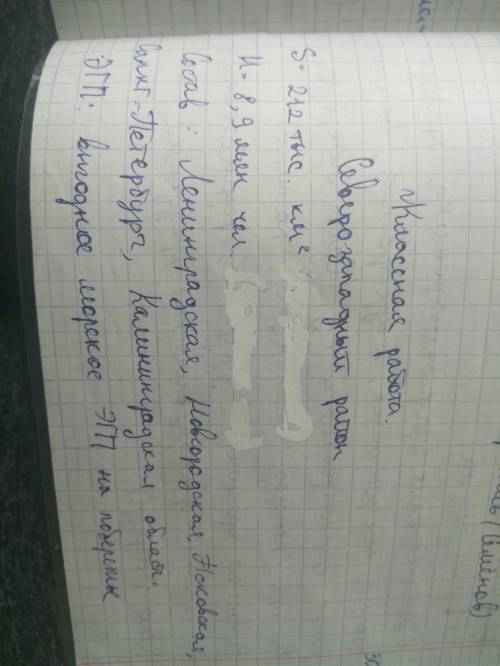 Классная работа.
Северо-западный район
S = 212 тыс. км²
Н = 8,9 млн чел
Состав: Ленинградская, Новгородская, Псковская,
Санкт-Петербург, Калининградская области.
ЭГП: выгодное морское ЭГП на побережье
(Семёнов)